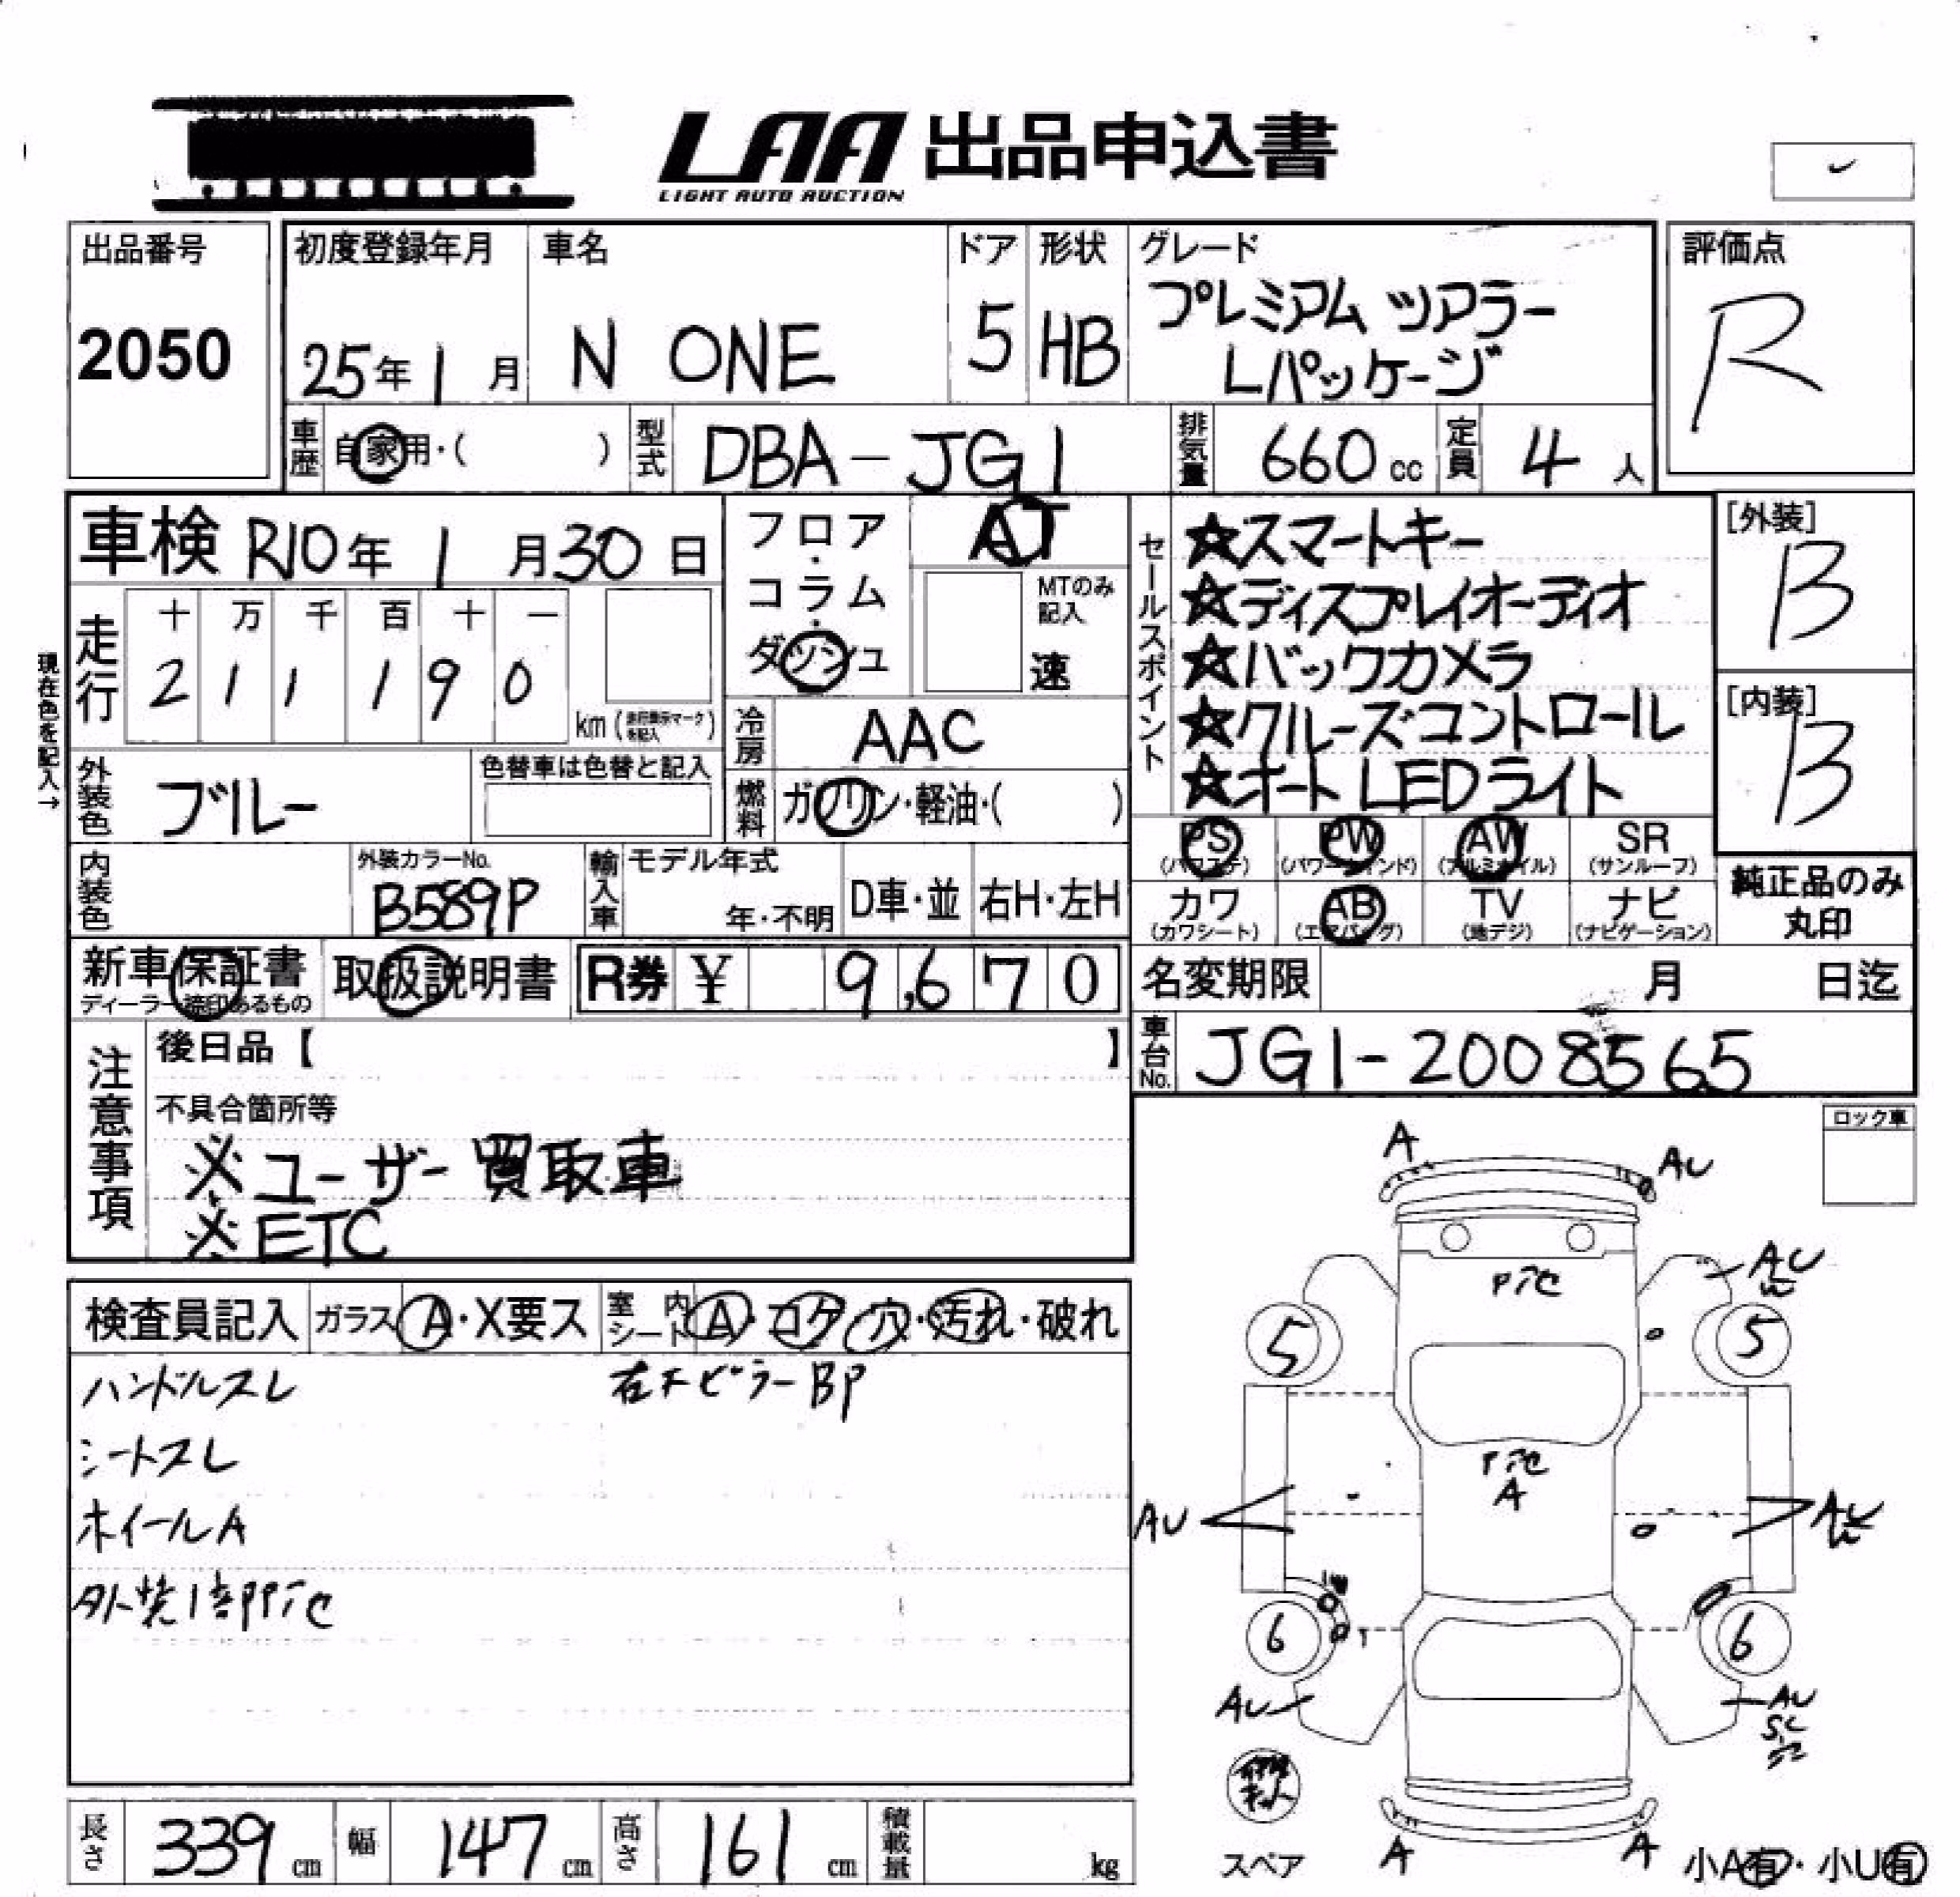 LAA 出品申込書
LIGHT AUTO AUCTION
出品番号
2050
初度登録年月
25年1月
車名
N ONE
ドア
5
形状
HB
グレード
プレミアム ツアラー
Lパッケージ
評価点
R
車歴
自家用・( )
型式
DBA-JG1
排気量
660cc
定員
4人
車検 R10年1月30日
現在色を記入→
走行
十 万 千 百 十 一
2 1 1 1 9 0
km(
を記入
)
フロア・コラム・ダッシュ
AT
MTのみ
記入
速
冷房
AAC
燃料
ガソリン・軽油・( )
セールスポイント
☆スマートキー
☆ディスプレイオーディオ
☆バックカメラ
☆クルーズコントロール
☆オートLEDライト
[外装]
B
[内装]
B
外装色
ブルー
色替車は色替と記入
内装色
外装カラーNo.
B589P
輸入車
モデル年式
年・不明
D車・並
右H・左H
PS
(パワステ)
PW
(パワーウィンド)
AW
(アルミホイル)
SR
(サンルーフ)
カワ
(カワシート)
AB
(エアバッグ)
TV
(地デジ)
ナビ
(ナビゲーション)
純正品のみ
丸印
新車保証書
ディーラー捺印あるもの
取扱説明書
R券 ¥ 9,670
名変期限 月 日迄
車台No.
JG1-2008565
注意事項
後日品【 】
不具合箇所等
※ユーザー買取車
※ETC
ロック車
検査員記入
ガラス A・X要ス
室内シート A・コゲ・穴・汚れ・破れ
ハンドルスレ
右Fピラー BP
シートスレ
ホイールA
A
AU
AU
5
5
A
AU
6
6
AU
AU
A
A
スペア
小A有・小U有
長さ
339cm
幅
147cm
高さ
161cm
積載量
kg